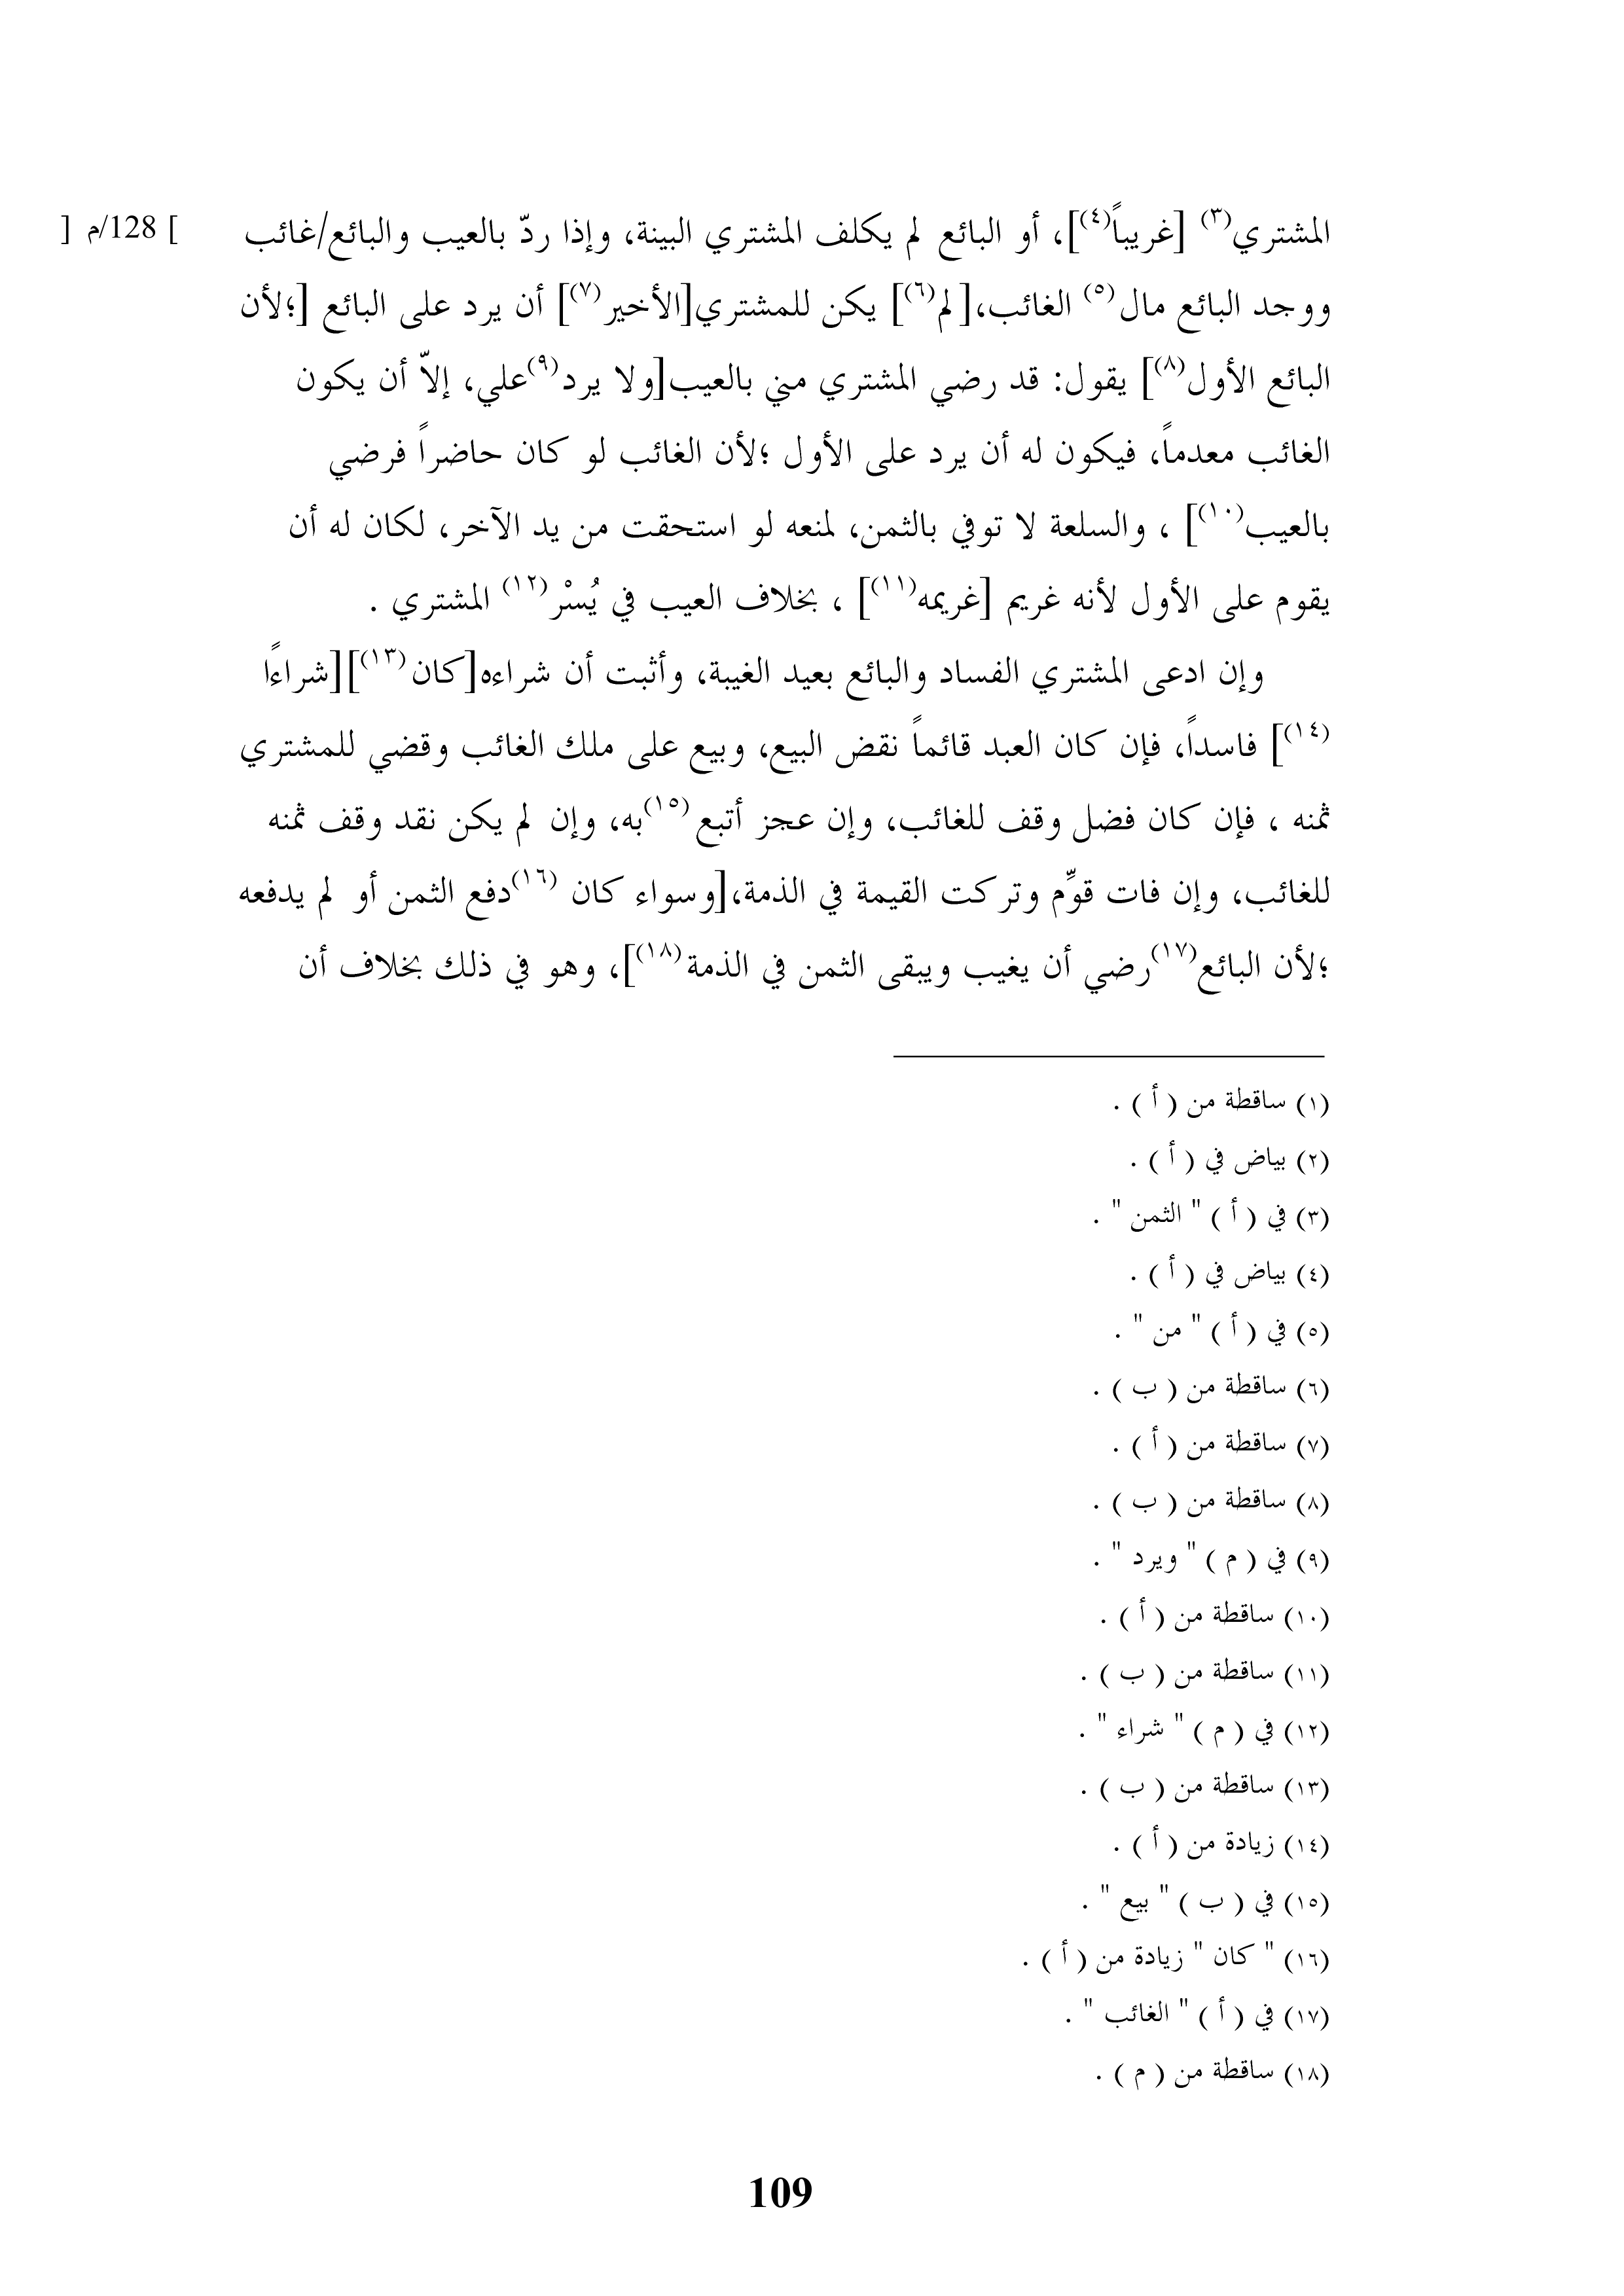 المشتري(٣) [غريباً(٤)]، أو البائع لم يكلف المشتري البينة، وإذا ردّ بالعيب والبائع/غائب [ 128/م ]
ووجد البائع مال(٥) الغائب،[ لم(٦)] يكن للمشتري[الأخير(٧)] أن يرد على البائع [؛لأن
البائع الأول(٨)] يقول: قد رضي المشتري مني بالعيب[ولا يرد(٩)علي، إلاّ أن يكون
الغائب معدماً، فيكون له أن يرد على الأول ؛لأن الغائب لو كان حاضراً فرضي
بالعيب(١٠)] ، والسلعة لا توفي بالثمن، لمنعه لو استحقت من يد الآخر، لكان له أن
يقوم على الأول لأنه غريم [غريمه(١١)] ، بخلاف العيب في يُسْر(١٢) المشتري .
وإن ادعى المشتري الفساد والبائع بعيد الغيبة، وأثبت أن شراءه[كان(١٣)][شراءًا
(١٤)] فاسداً، فإن كان العبد قائماً نقض البيع، وبيع على ملك الغائب وقضي للمشتري
ثمنه ، فإن كان فضل وقف للغائب، وإن عجز أتبع(١٥)به، وإن لم يكن نقد وقف ثمنه
للغائب، وإن فات قوِّم وتركت القيمة في الذمة،[وسواء كان (١٦)دفع الثمن أو لم يدفعه
؛لأن البائع(١٧)رضي أن يغيب ويبقى الثمن في الذمة(١٨)]، وهو في ذلك بخلاف أن
(١) ساقطة من ( أ ) .
(٢) بياض في ( أ ) .
(٣) في ( أ ) " الثمن " .
(٤) بياض في ( أ ) .
(٥) في ( أ ) " من " .
(٦) ساقطة من ( ب ) .
(٧) ساقطة من ( أ ) .
(٨) ساقطة من ( ب ) .
(٩) في ( م ) " ويرد " .
(١٠) ساقطة من ( أ ) .
(١١) ساقطة من ( ب ) .
(١٢) في ( م ) " شراء " .
(١٣) ساقطة من ( ب ) .
(١٤) زيادة من ( أ ) .
(١٥) في ( ب ) " بيع " .
(١٦) " كان " زيادة من ( أ ) .
(١٧) في ( أ ) " الغائب " .
(١٨) ساقطة من ( م ) .
109